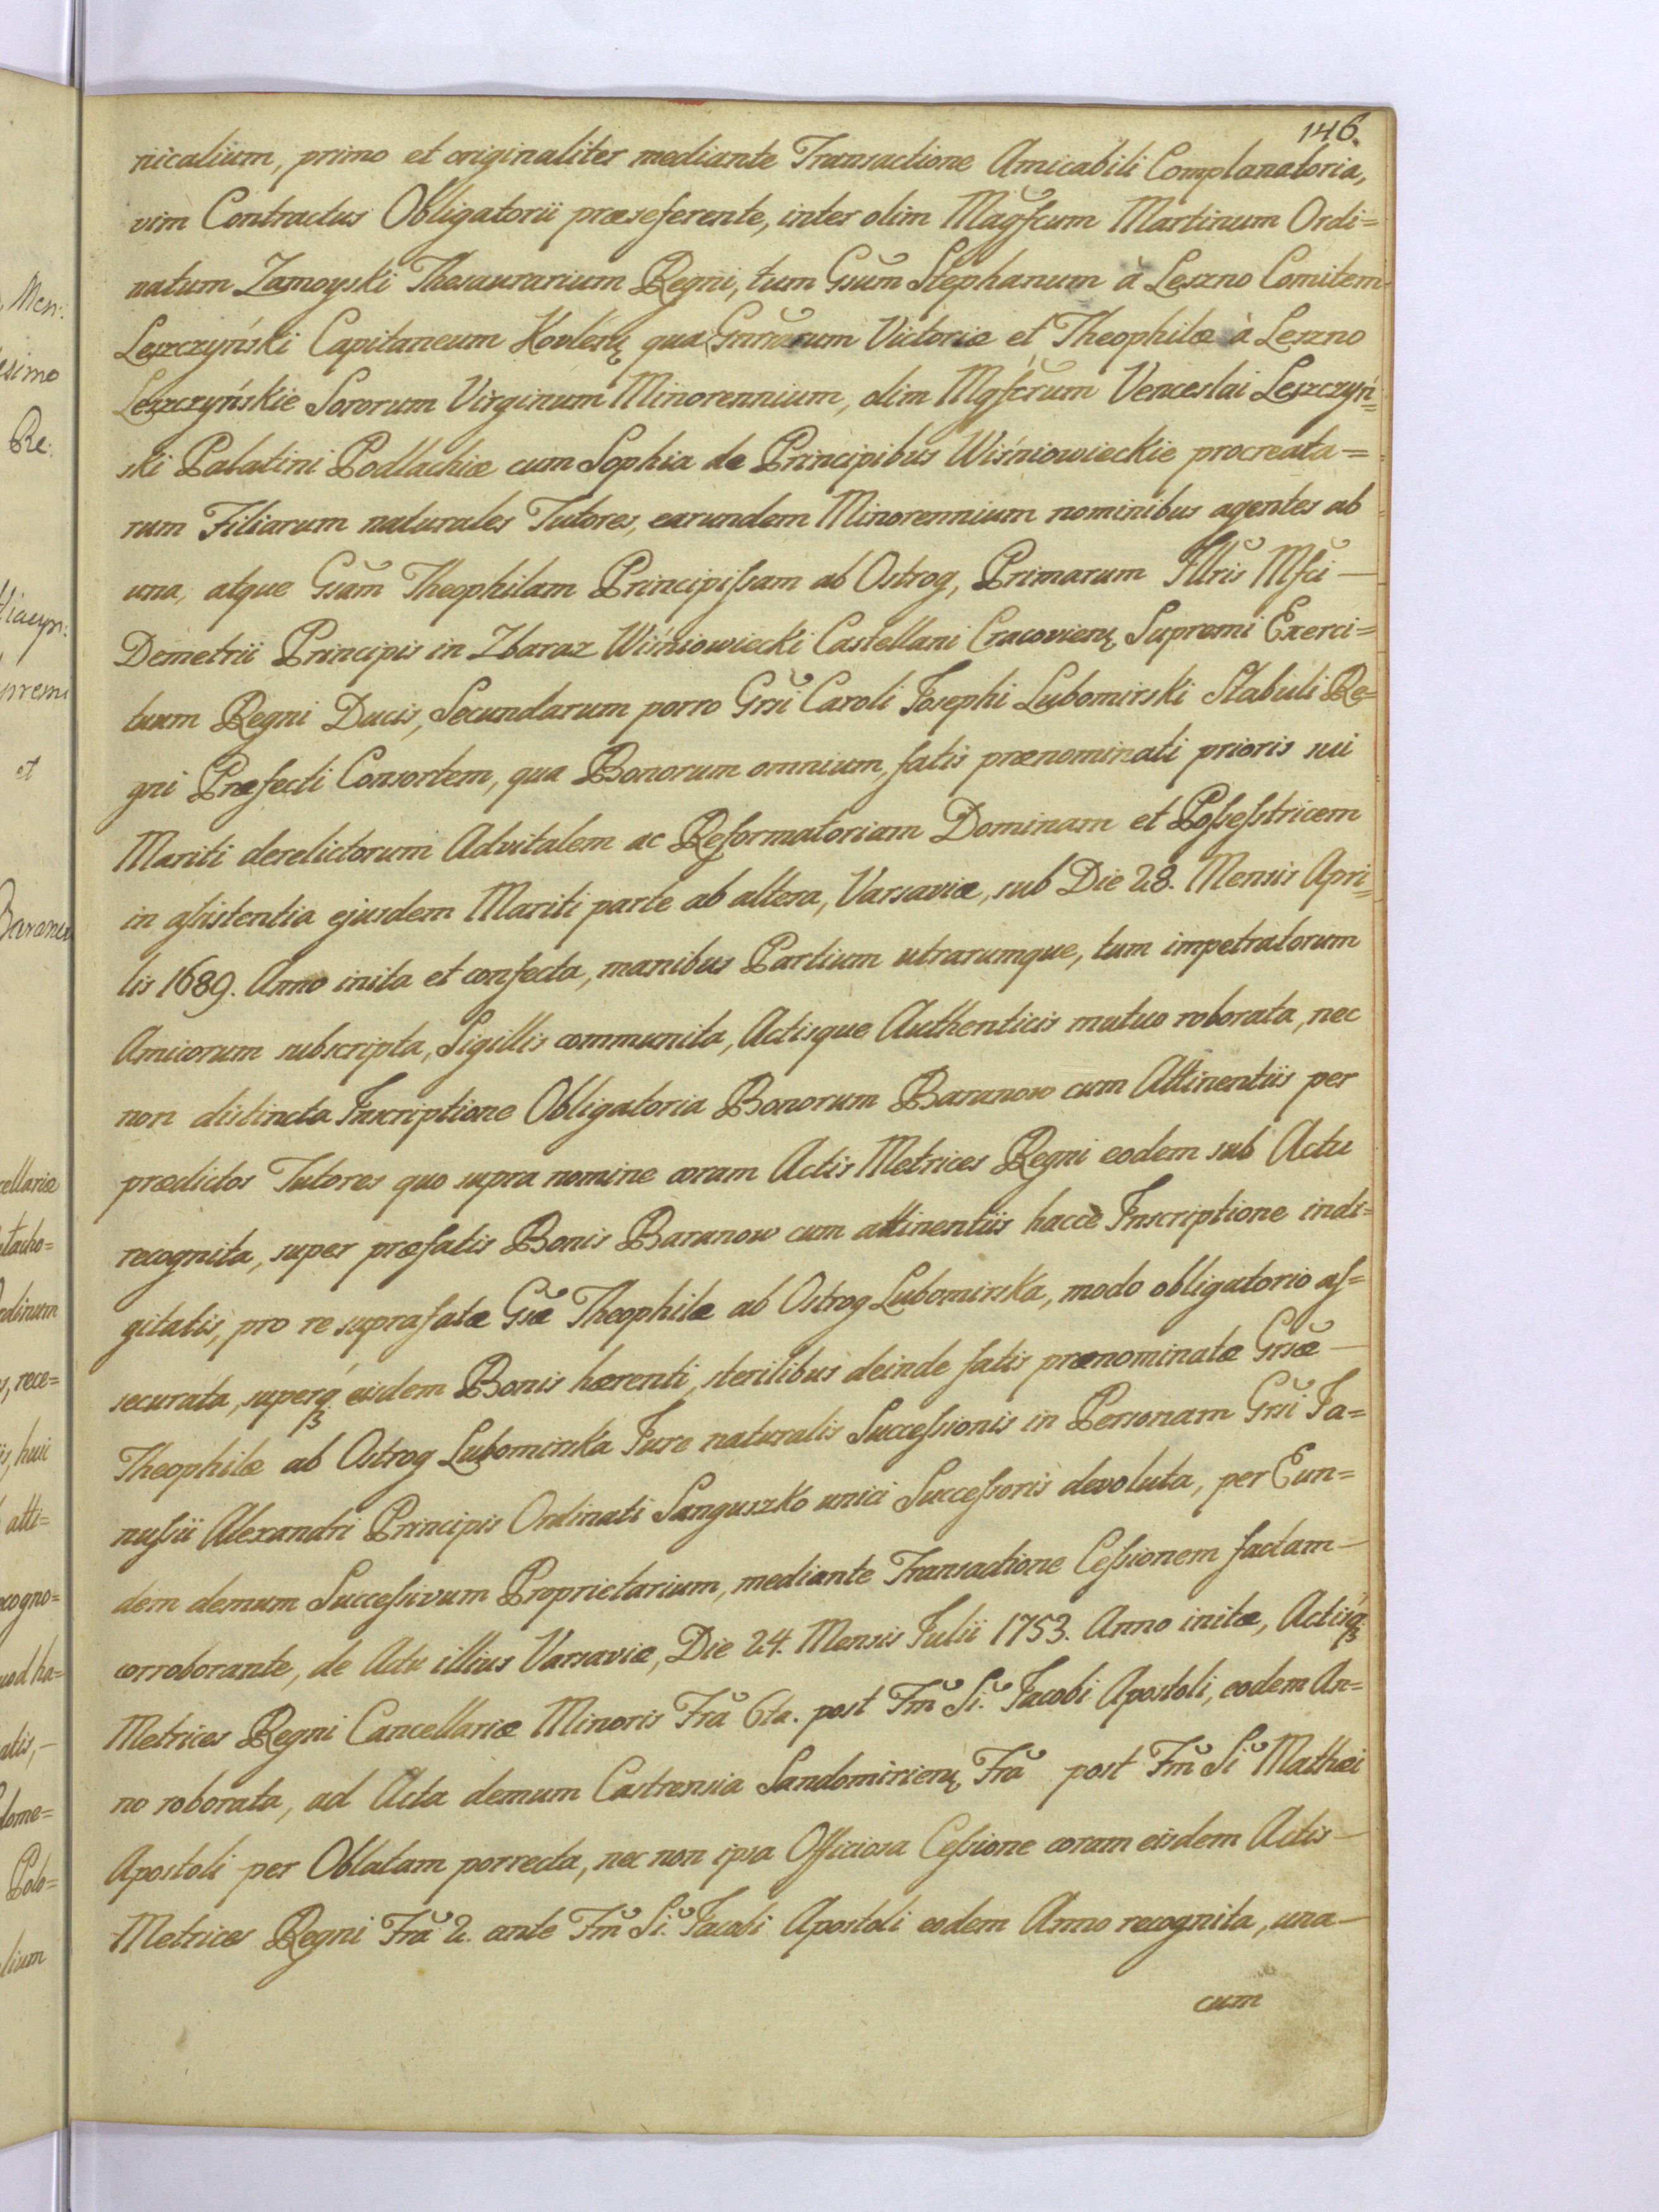 146.
nicalium, primo et originaliter mediante Transactione Amicabili Complanatoria,
vim Contractus Obligatorii præseferente, inter olim Magfcum Martinum Ordi=
natum Zamoyski Thesaurarium Regni, tum Gsum Stephanum à Leszno Comitem
Leszczyński Capitaneum Kovlen. qua Gnrarum Victoriæ et Theophilæ à Leszno
Leszczyńskie Sororum Virginum Minorennium, olim Mgfcrum Venceslai Leszczyń=
ski Palatini Podlachiæ cum Sophia de Principibus Wiśniowieckie procreata=
rum Filiarum naturales Tutores, earundem Minorennium nominibus agentes ab
una, atque Gsam Theophilam Principissam ab Ostrog, Primarum Illris Mfci —
Demetrii Principis in Zbaraz Wiśniowiecki Castellani Cracovien. Supremi Exerci=
tuum Regni Ducis, Secundarum porro Grsi Caroli Josephi Lubomirski Stabuli Re=
gni Præfecti Consortem, qua Bonorum omnium, fatis prænominati prioris sui
Mariti derelictorum Advitalem ac Reformatoriam Dominam et Possessitricem
in assistentia ejusdem Mariti parte ab altera, Varsaviæ, sub Die 28. Mensis Apri=
lis 1689. Anno inita et confecta, manibus Partium utrarumque, tum impetratorum
Amicorum subscripta, Sigillis communita, Actisque Authenticis mutuo roborata, nec
non distincta Inscriptione Obligatoria Bonorum Baranow cum Attinentiis per
prædictos Tutores quo supra nomine coram Actis Metrices Regni eodem sub Actu
recognita, super præfatis Bonis Baranow cum attinentiis haccè Inscriptione indi=
gitatis, pro re suprafatæ Gsæ Theophilæ ab Ostrog Lubomirska, modo obligatorio as=
securata, superq́ʒ eisdem Bonis hærenti, sterilibus deinde fatis prænominatæ Grsæ —
Theophilæ ab Ostrog Lubomirska Jure naturalis Successionis in Personam Grsi Ja=
nussii Alexandri Principis Ordinati Sanguszko unici Successoris devoluta, per Eun=
dem demum Successivum Proprietarium, mediante Transactione Cessionem factam —
corroborante, de Actu illius Varsaviæ, Die 24. Mensis Julii 1753. Anno initæ, Actisq́ʒ
Metrices Regni Cancellariæ Minoris Fra 6ta. post Fm Si. Jacobi Apostoli, eodem An=
no roborata, ad Acta demum Castrensia Sandomirien. Fra post Fm Si Mathæi
Apostoli per Oblatam porrecta, nec non ipsa Officiosa Cessione coram eisdem Actis —
Metrices Regni Fra 2. ante Fm Si. Jacobi Apostoli eodem Anno recognita, una —
cum